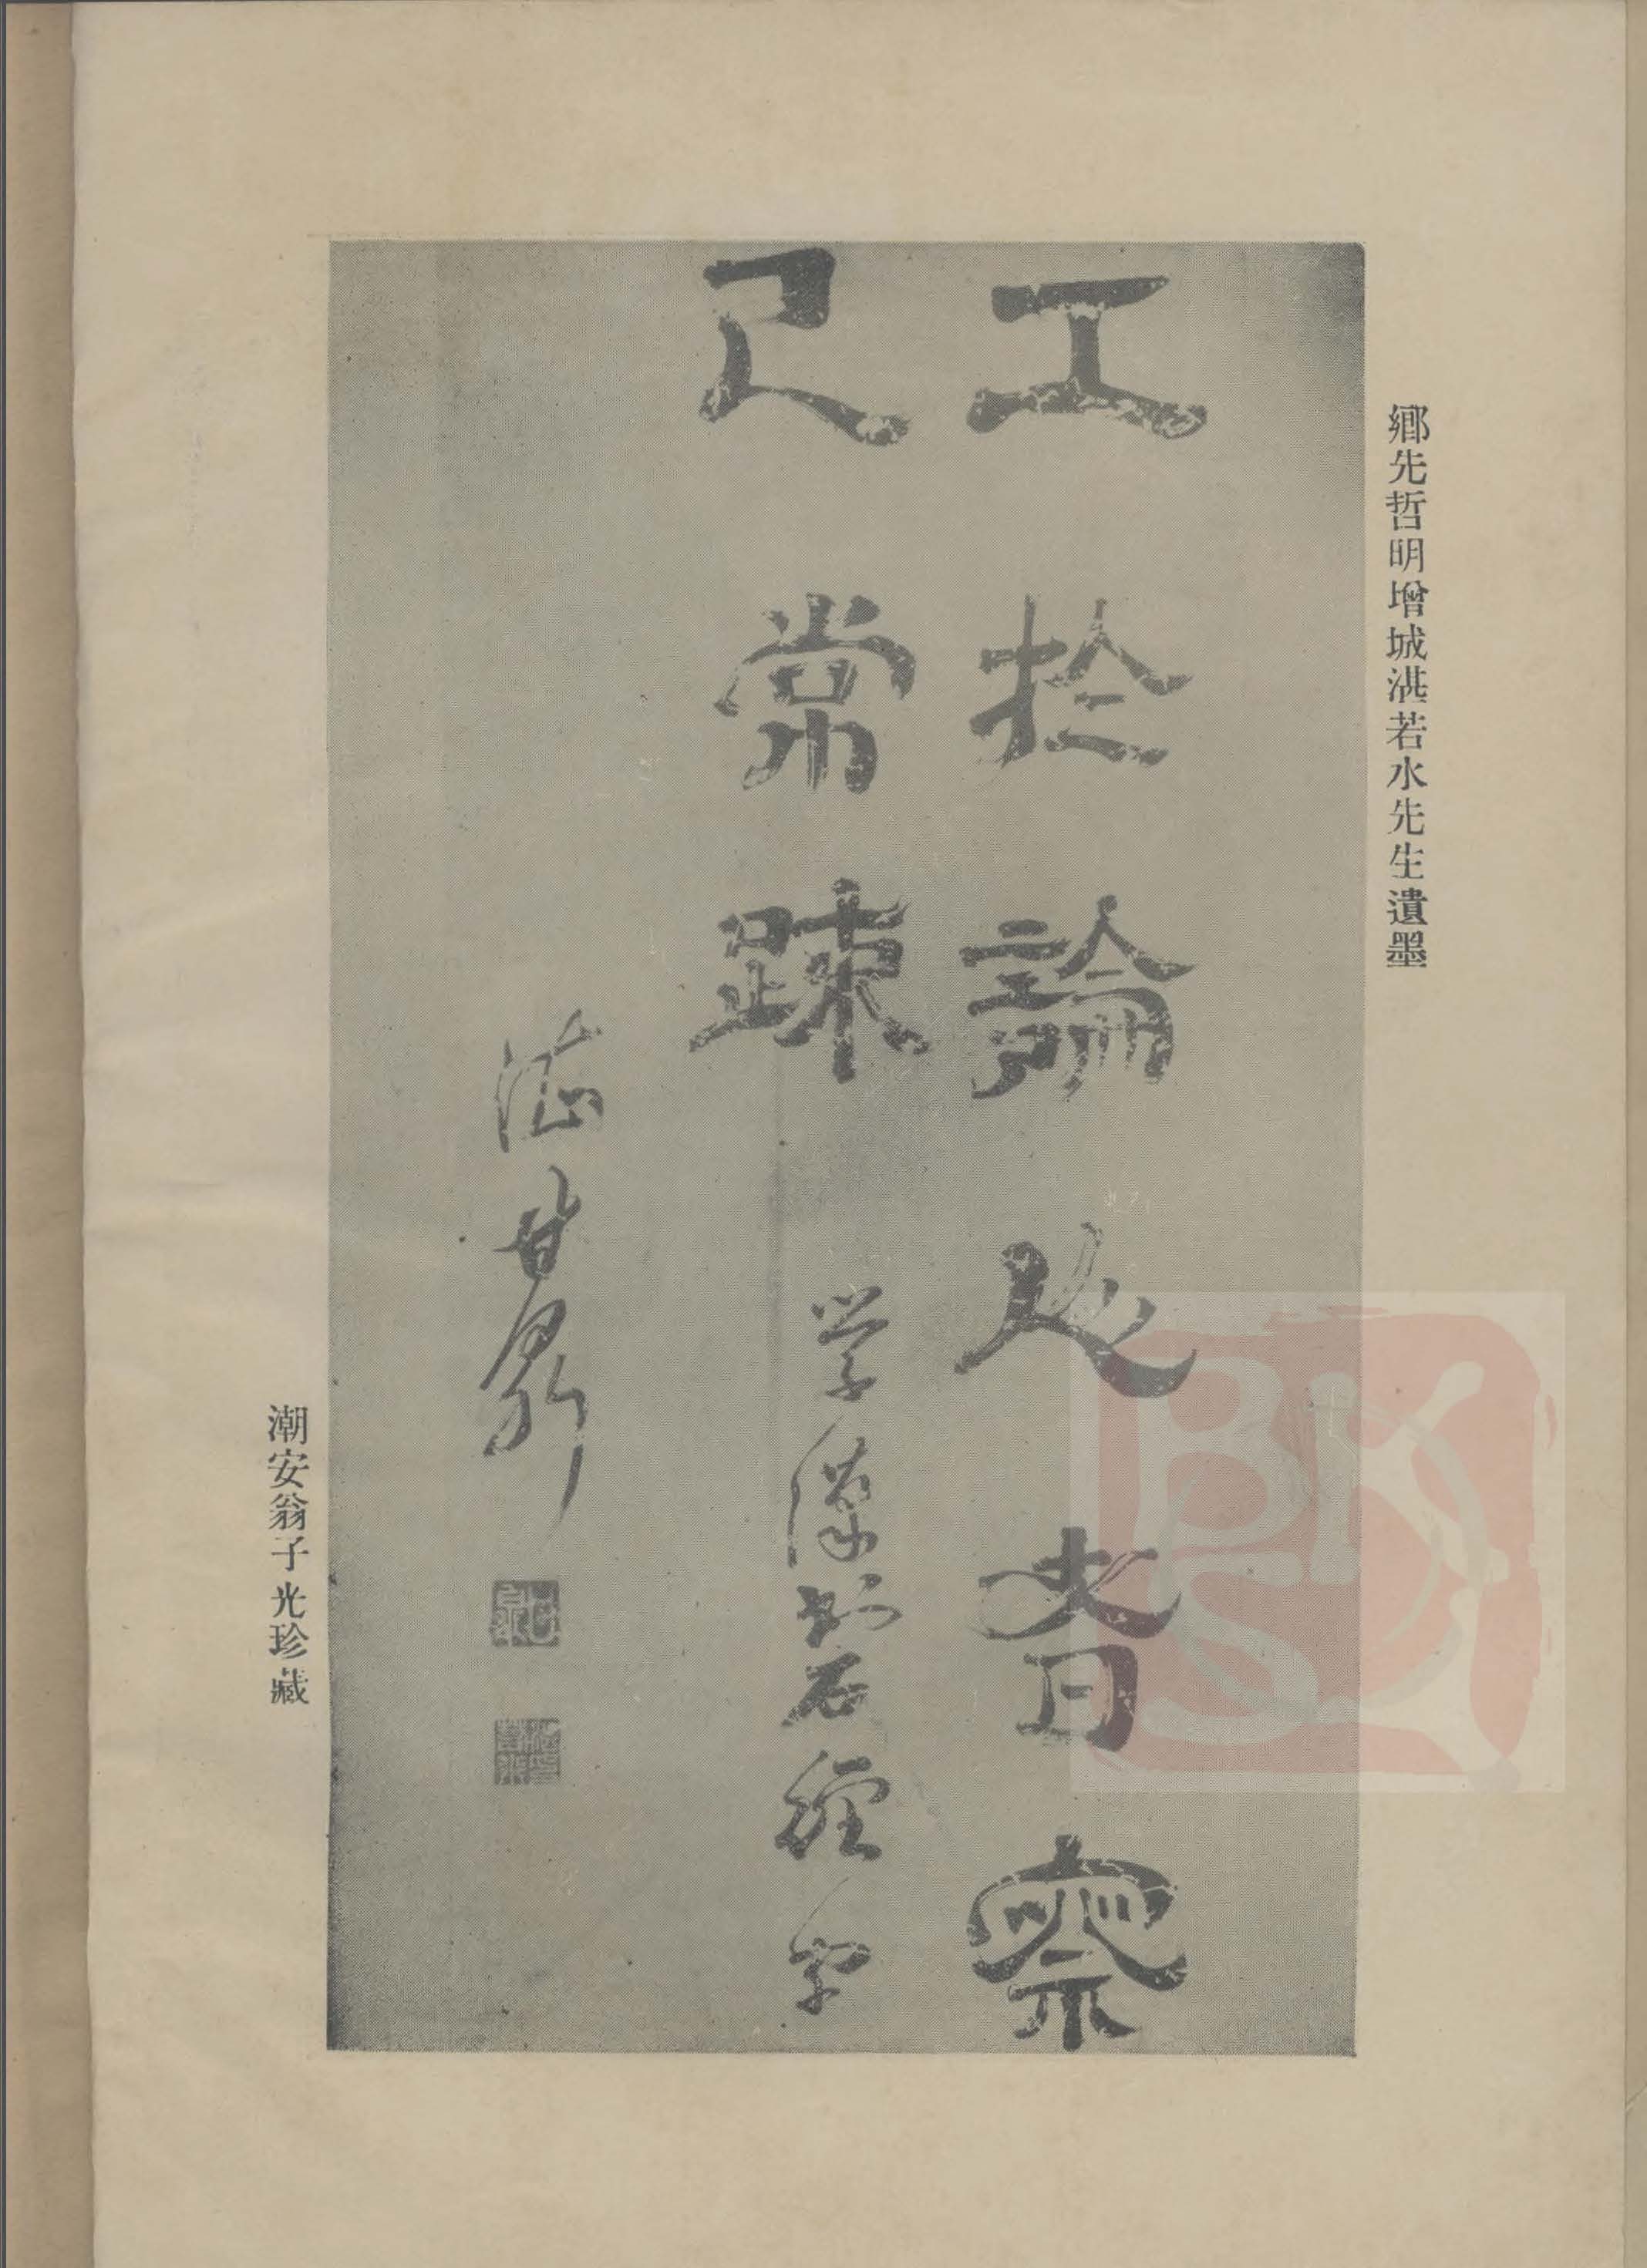 鄉先哲明增城湛若水先生遺墨
工於論人者察
己常疎 学漢刻石經字
湛甘泉
甘泉
潮安翁子光珍藏
BKS